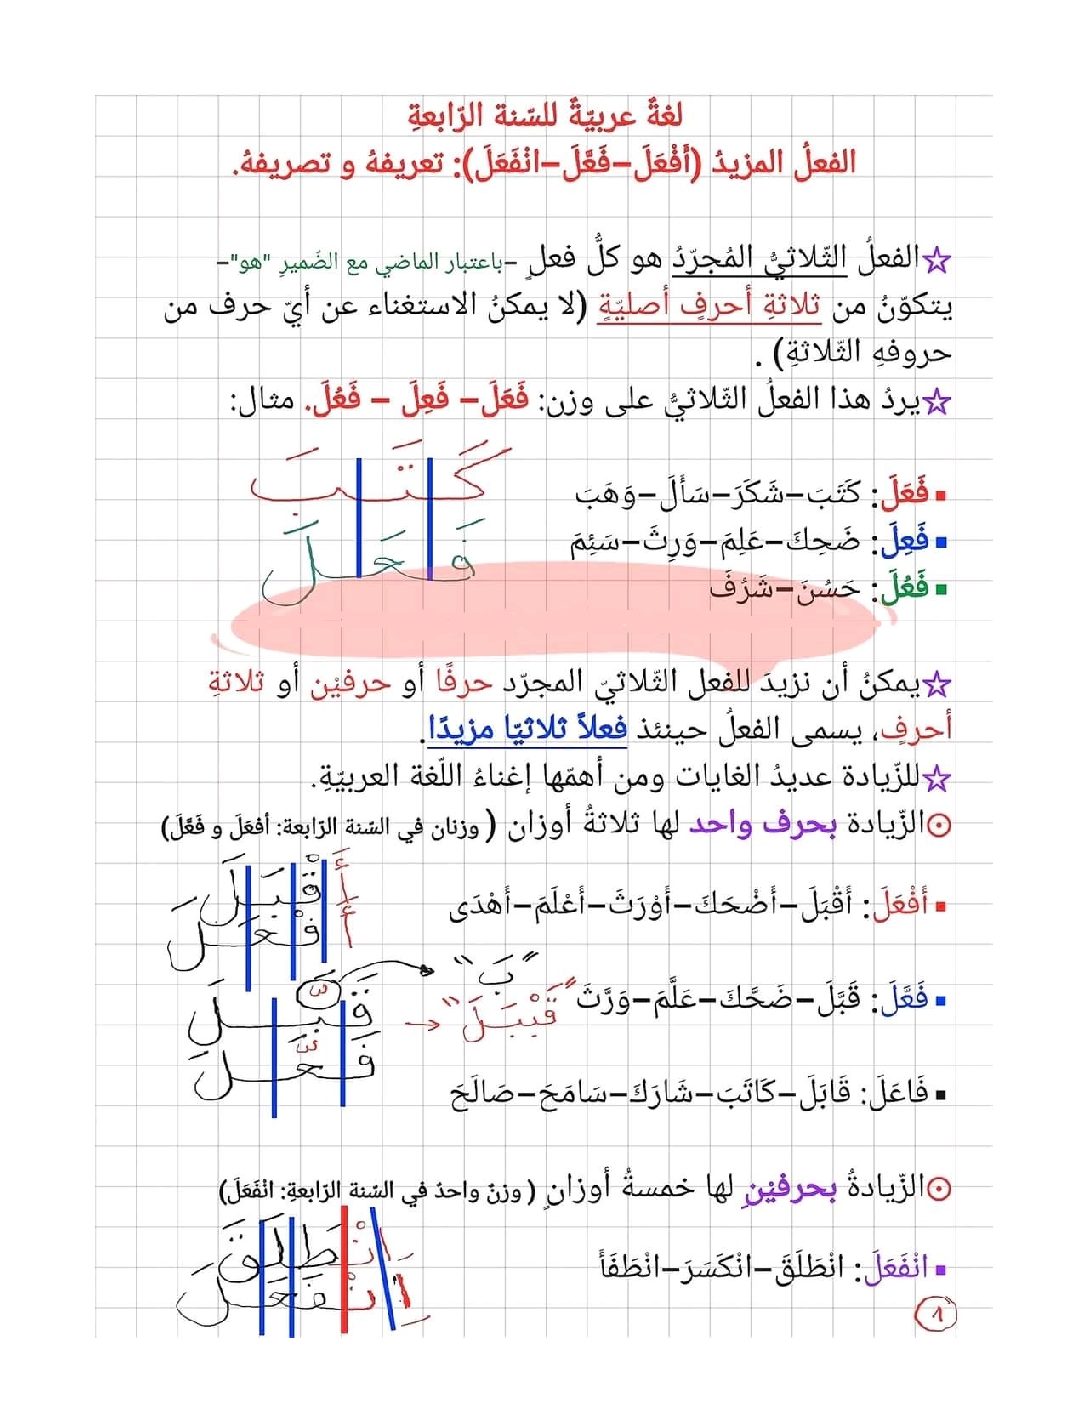 لغةٌ عربيّةٌ للسّنة الرّابعةِ
الفعلُ المزيدُ (أَفْعَلَ–فَعَّلَ–انْفَعَلَ): تعريفهُ و تصريفهُ.
☆الفعلُ الثّلاثيُّ المُجرّدُ هو كلُّ فعلٍ –باعتبار الماضي مع الضّميرِ "هو"–
يتكوّنُ من ثلاثةِ أحرفٍ أصليّةٍ (لا يمكنُ الاستغناء عن أيّ حرف من
حروفهِ الثّلاثةِ) .
☆يردُ هذا الفعلُ الثّلاثيُّ على وزن: فَعَلَ– فَعِلَ – فَعُلَ. مثال:
▪فَعَلَ: كَتَبَ–شَكَرَ–سَأَلَ–وَهَبَ
كَتَبَ
▪فَعِلَ: ضَحِكَ–عَلِمَ–وَرِثَ–سَئِمَ
فَعَلَ
▪فَعُلَ: حَسُنَ–شَرُفَ
☆يمكنُ أن نزيدَ للفعل الثّلاثيّ المجرّد حرفًا أو حرفيْن أو ثلاثةِ
أحرفٍ، يسمى الفعلُ حينئذ فعلاً ثلاثيّا مزيدًا.
☆للزّيادة عديدُ الغايات ومن أهمّها إغناءُ اللّغة العربيّةِ.
⊙الزّيادة بحرف واحد لها ثلاثةُ أوزان ( وزنان في السّنة الرّابعة: أفعَلَ و فَعَّلَ)
▪أَفْعَلَ: أَقْبَلَ–أَضْحَكَ–أَوْرَثَ–أَعْلَمَ–أَهْدَى
أَقْبَلَ
أَفْعَلَ
▪فَعَّلَ: قَبَّلَ–ضَحَّكَ–عَلَّمَ–وَرَّثَ
"بَ"
قَبَّلَ → "قَبْبَلَ"
فَعَّلَ
▪فَاعَلَ: قَابَلَ–كَاتَبَ–شَارَكَ–سَامَحَ–صَالَحَ
⊙الزّيادةُ بحرفيْنِ لها خمسةُ أوزانٍ ( وزنٌ واحدٌ في السّنة الرّابعةِ: انْفَعَلَ)
▪انْفَعَلَ: انْطَلَقَ–انْكَسَرَ–انْطَفَأَ
انْطَلَقَ
انْفَعَلَ
1